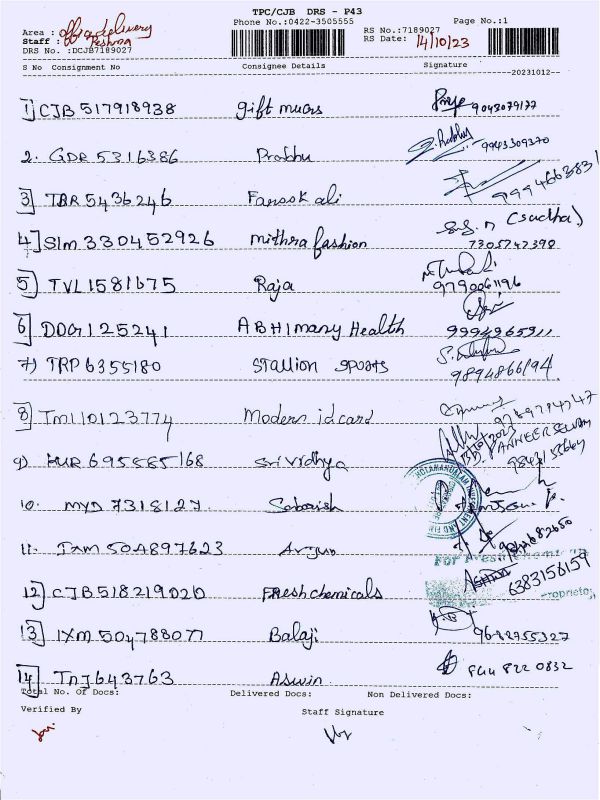 TPC/CJB DRS - P43
Phone No.:0422-3505555
Page No.:1
Area : office delivery
Staff : Reshma
DRS No. :DCJB7189027
RS No.:7189027
RS Date: 14/10/23
S No Consignment No Consignee Details Signature
20231012
1] CJB 517918938 gift muars Priya 9043079177
2. GDR 5316386 Prabhu S. Prabhu 9943309370
3] TBR 5436246 Farook ali 9994663831
4] SLM 330452926 mithra fashion S.S. n (sudha)
7305747398
5] TVL1581675 Raja
9790061196
6] DDG1125241 ABHIMANY Health 9994965911
7) TRP 6355180 Stallion sports 9894866194
8] TM110123774 Modern id card 9789794747
13/10/2023
PANNEERSELVAM
9) KUR 695585168 Sri vidhya
10. MYD 7318127 Sabarish
11. IXM 504897623 Arjun
For
12] CJB518219020 Fresh chemicals 6383156159
Proprietor
13] IXM 504788077 Balaji 9688955327
14] TNJ643763 Aswin 844 822 0832
Total No. Of Docs: Delivered Docs: Non Delivered Docs:
Verified By Staff Signature